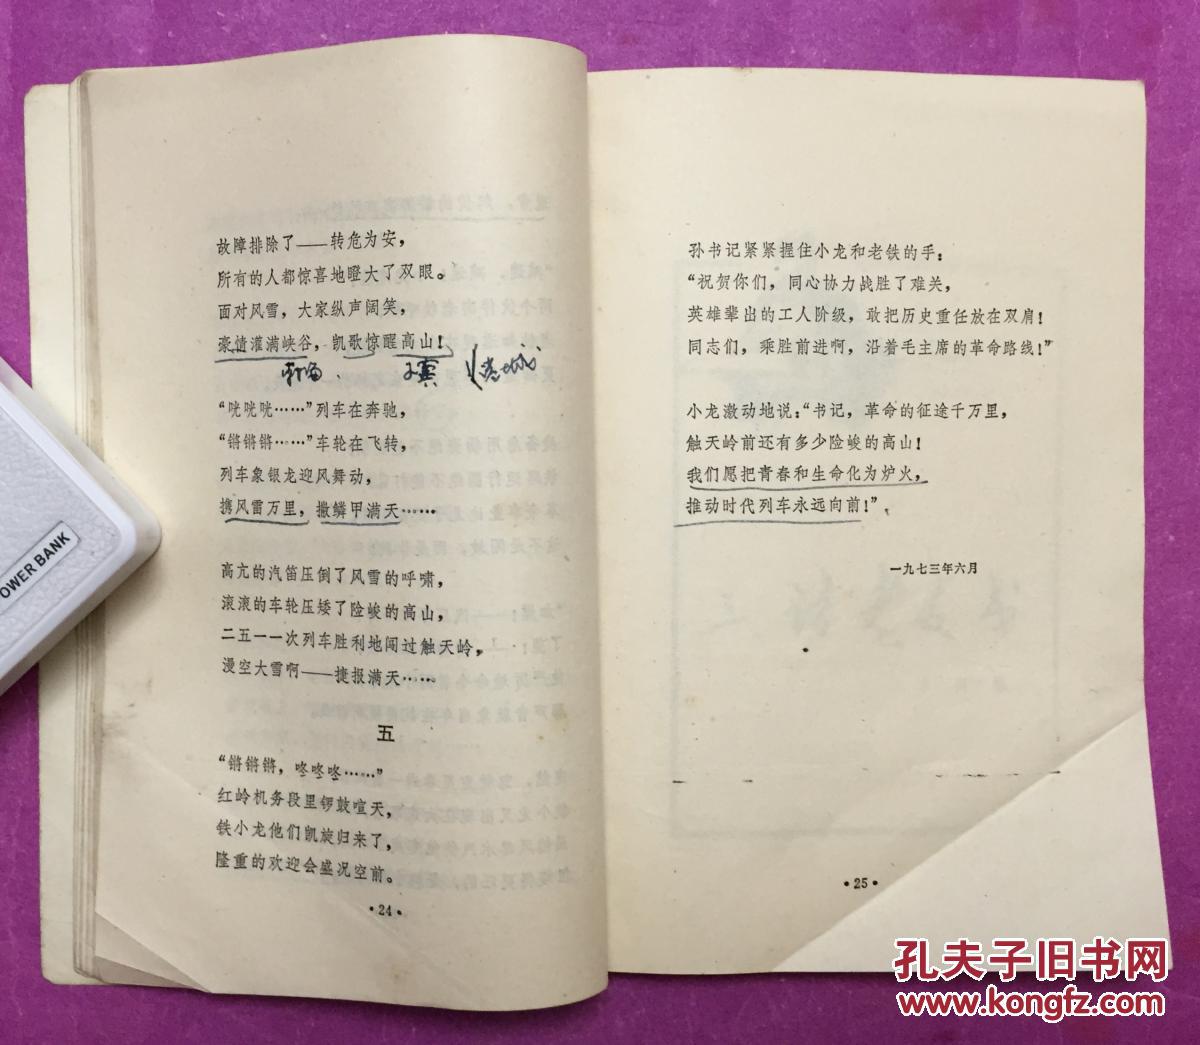 故障排除了——转危为安，
所有的人都惊喜地瞪大了双眼。
面对风雪，大家纵声阔笑，
豪情灌满峡谷，凯歌惊醒高山！
“咣咣咣……”列车在奔驰，
“锵锵锵……”车轮在飞转，
列车象银龙迎风舞动，
携风雷万里，撒鳞甲满天……
高亢的汽笛压倒了风雪的呼啸，
滚滚的车轮压矮了险峻的高山，
二五一一次列车胜利地闯过触天岭，
漫空大雪啊——捷报满天……
五
“锵锵锵，咚咚咚……”
红岭机务段里锣鼓喧天，
铁小龙他们凯旋归来了，
隆重的欢迎会盛况空前。
·24·
孙书记紧紧握住小龙和老铁的手：
“祝贺你们，同心协力战胜了难关，
英雄辈出的工人阶级，敢把历史重任放在双肩！
同志们，乘胜前进啊，沿着毛主席的革命路线！”
小龙激动地说：“书记，革命的征途千万里，
触天岭前还有多少险峻的高山！
我们愿把青春和生命化为炉火，
推动时代列车永远向前！”
一九七三年六月
·25·
OWER BANK
孔夫子旧书网
www.kongfz.com